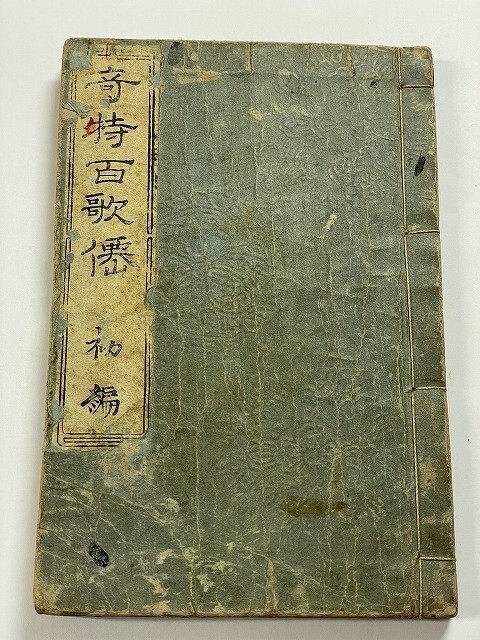 奇特百歌僊
初編